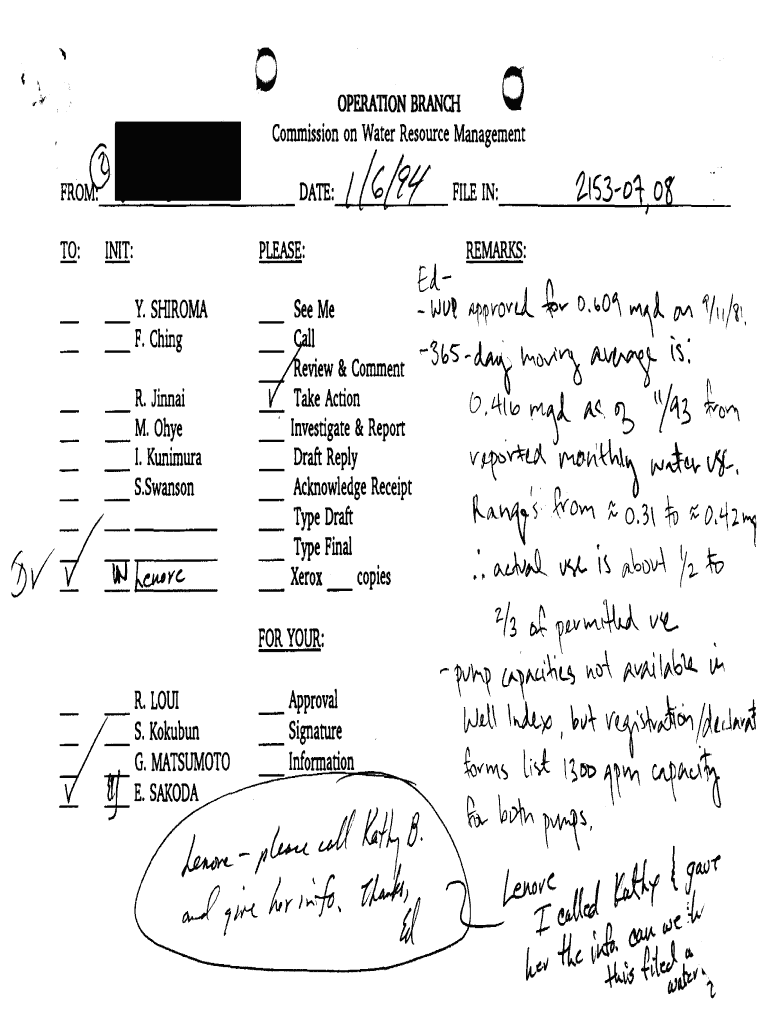 OPERATION BRANCH
Commission on Water Resource Management
②
FROM: DATE: 1/6/94 FILE IN: 2153-07,08
TO: INIT: PLEASE: REMARKS:
Ed-
Y. SHIROMA See Me
- WUP approved for 0.609 mgd on 9/11/81.
F. Ching Call
- 365-day moving average is:
Review & Comment
R. Jinnai ✓ Take Action
0.416 mgd as of 11/93 from
M. Ohye Investigate & Report
I. Kunimura Draft Reply
reported monthly water use.
S.Swanson Acknowledge Receipt
Ranges from ≈ 0.31 to ≈ 0.42 mg
Type Draft
Type Final
✓ Lenore Xerox ___ copies
∴ actual use is about 1/2 to
2/3 of permitted use
FOR YOUR:
- pump capacities not available in
R. LOUI Approval
Well Index, but registration/declarat
S. Kokubun Signature
G. MATSUMOTO Information
forms list 1300 gpm capacity
✓ E. SAKODA
for both pumps.
Lenore - please call Kathy B.
and give her info. Thanks,
Ed
Lenore
I called Kathy & gave
her the info. can we
this filed
water.
?